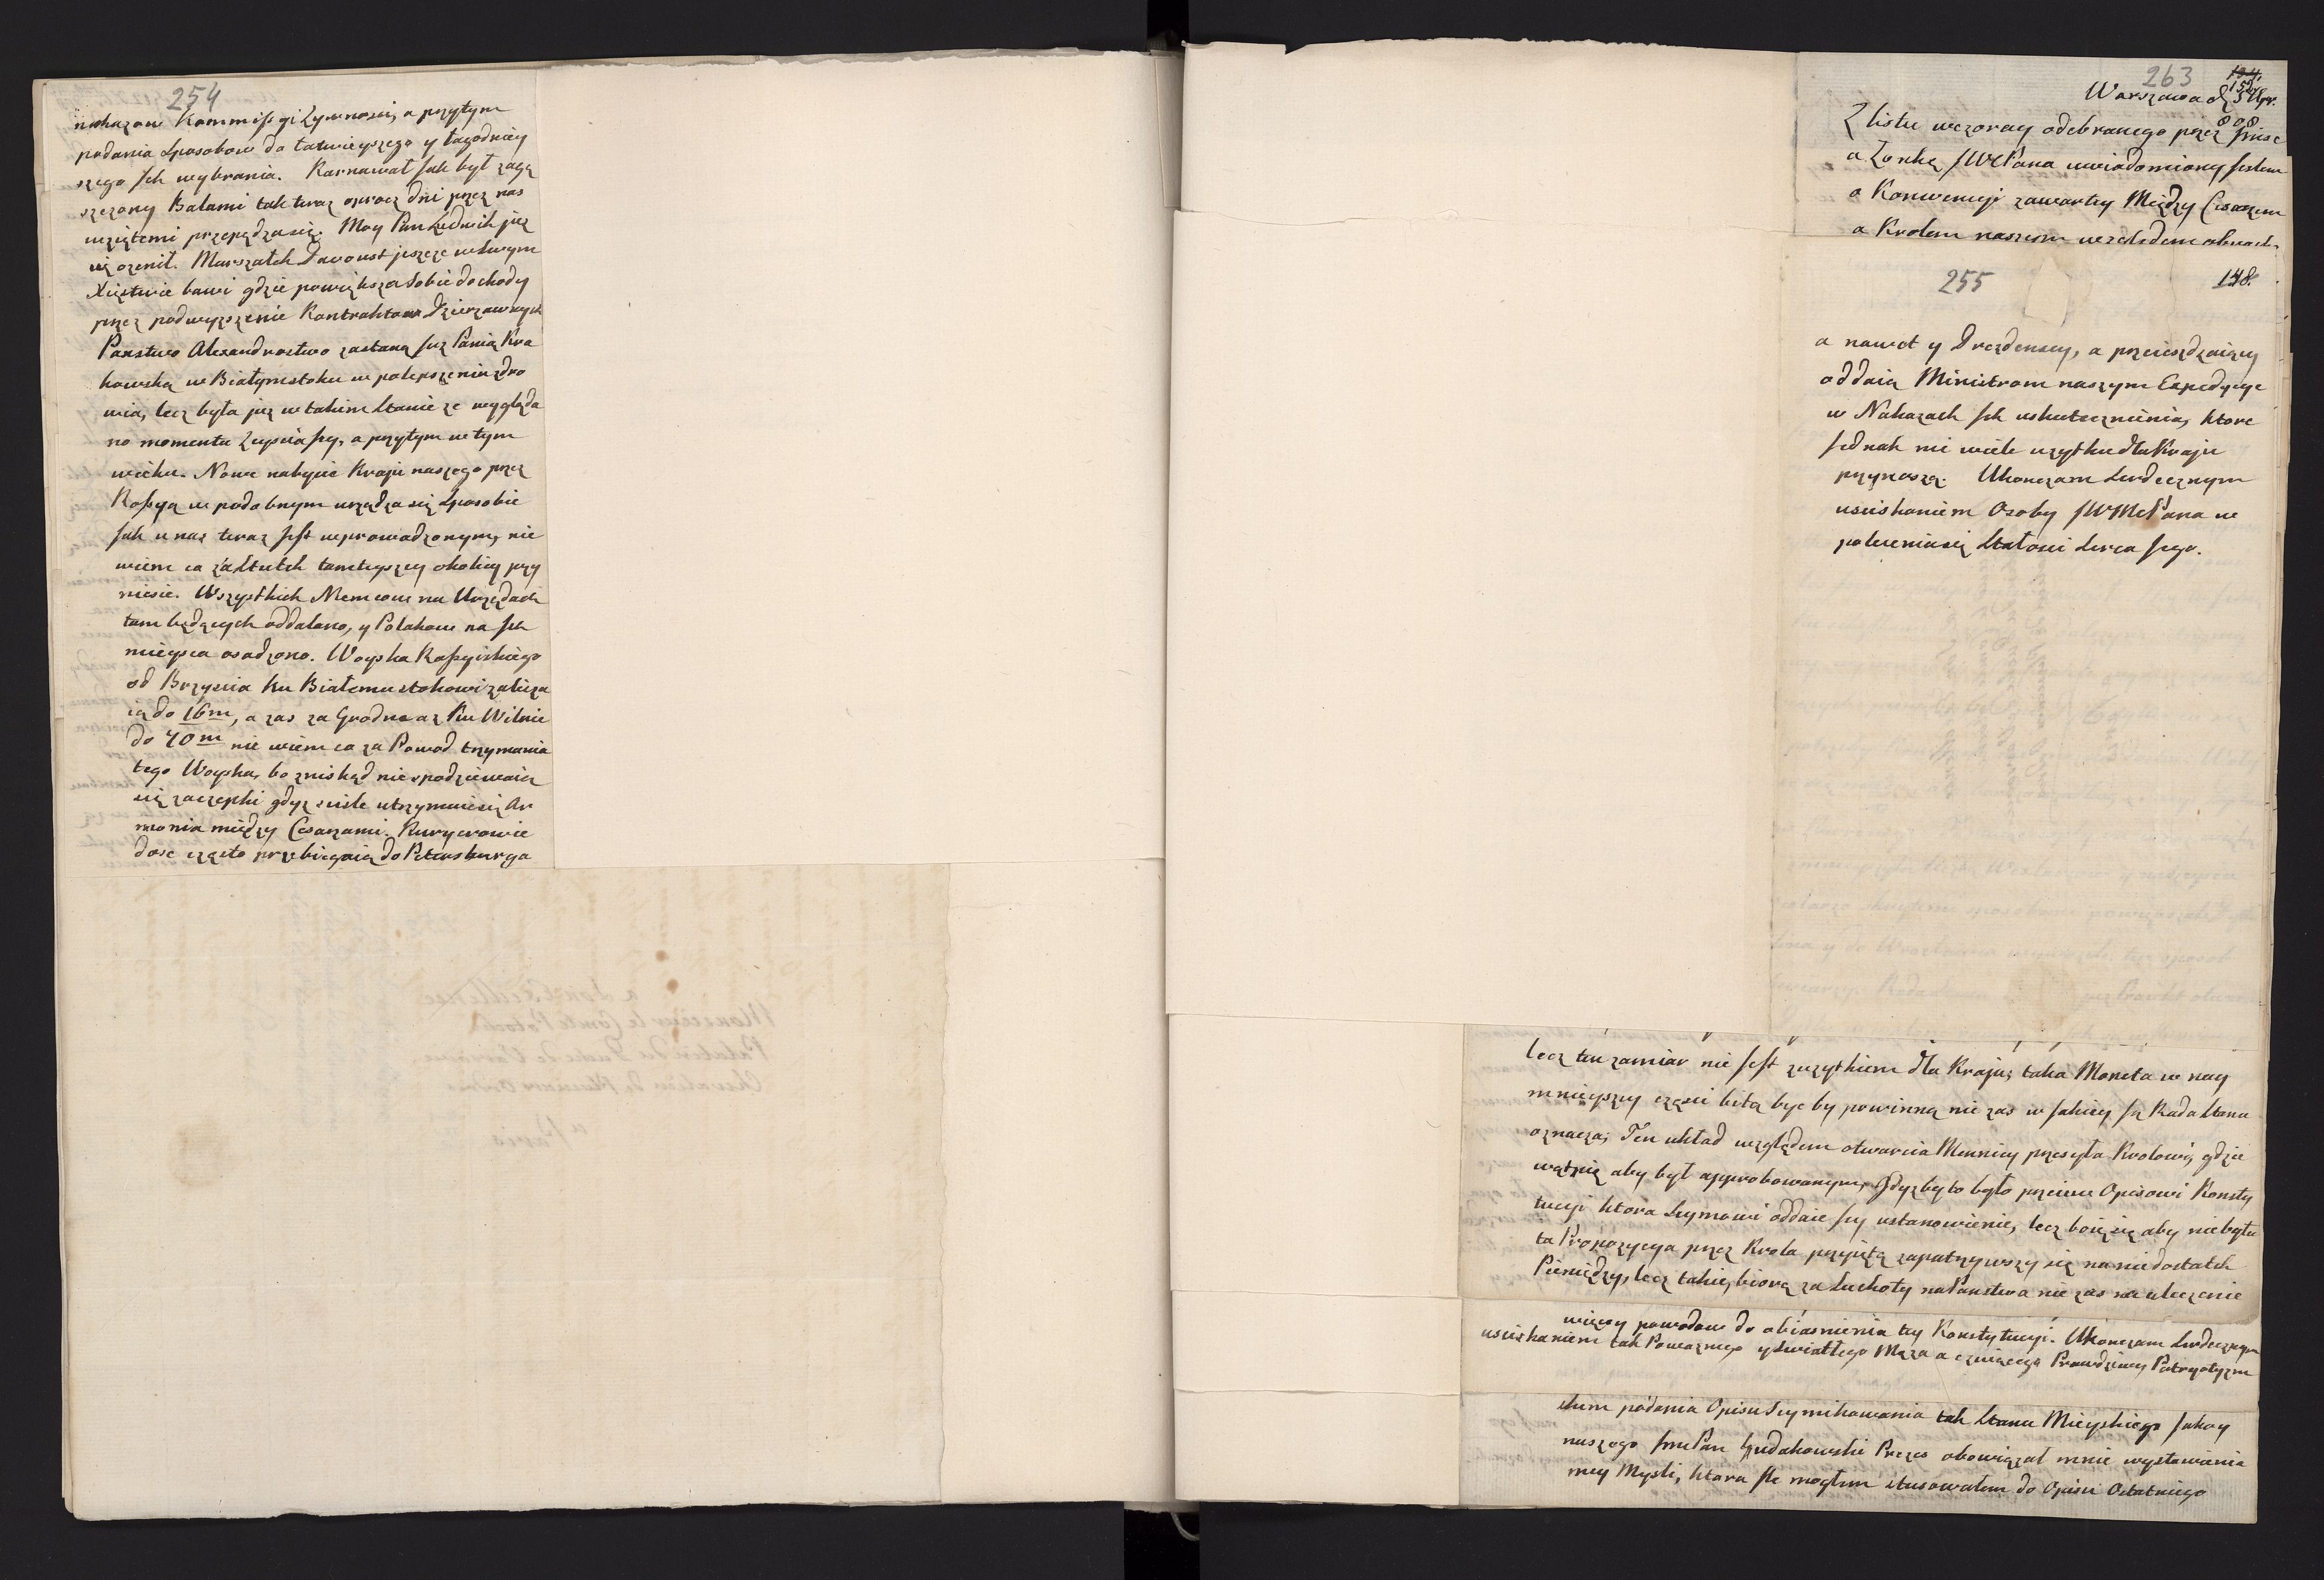 254
nakazow Kommissyi Żywnosci, a przytym
podania Sposobow do łatwieyszego y łagodniey
szego Jch wybrania. Karnawał Jak był zagę
szczony Balami tak teraz oprocz dni przez nas
wziętemi przepędza się. Moy Pan Ludwik już
się ożenił. Marszałek Davoust jeszcze w swym
Xięstwie bawi gdzie powiększa sobie dochody
przez podwyższenie Kontraktow Dzierzawnych
Panstwo Alexandrostwo zastaną Już Panią Kra
kowską w Białymstoku w polepszeniu zdro
wia, lecz była już w takim Stanie że wygląda
no momentu Zeyscia Jey, a przytym w tym
wieku. Nowe nabycie Kraju naszego przez
Rossyą w podobnym urządza się Sposobie
Jak u nas teraz Jest wprowadzonym, nie
wiem co za Skutek tamteyszey okolicy przy
niesie. Wszystkich Niemcow na Urzędach
tam będących oddalono, y Polakow na Jch
mieysca osadzono. Woyska Rossyiskiego
od Brzyscia ku Białemustokowi zalicza
ią do 16m, a zas za Grodno aż Ku Wilnie
do 40m nie wiem co za Powod trzymania
tego Woyska, bo zniskąd nie spodziewaią
się zaczepki gdyż scisle utrzymuie się Ar
monia między Cesarzami. Kuryerowie
dosc często przebiegaią do Petersburga
263
152.
Warszawa d. 5 Apr.
808
Z listu wczoray odebranego przez
a Zonkę JWPana uwiadomiony Jestem
o Konwencyi zawartey Między Cesarzem
a Krolem naszem względem
255
148.
a nawet y Drezdenscy, a przeieżdzaiący
oddaią Ministrom naszym Expedycye
w Nakazach Jch uskutecznienia, ktore
Jednak nie wiele użytku dla Kraju
przynoszą. Ukonczam Serdecznym
usciskaniem Osoby JWMcPana w
poleceniu się Stałosci Serca Jego.
lecz ten zamiar nie Jest zużytkiem dla Kraju; taka Moneta w nay
mnieyszey częsci bitą byc by powinną nie zas w Jakiey Ją Rada Stanu
oznacza; Ten układ względem otwarcia Mennicy przesyła Krolowi, gdzie
wątpię aby był approbowanym, Gdyż by to było przeciw Opisowi Konsty
tucyi ktora Seymowi oddaie Jey ustanowienie, lecz boię się aby nie była
ta Propozycya przez Krola przyjętą zapatrzywszy się na niedostatek
Pieniędzy, lecz takie, biorą za Suchoty na Panstwa nie zas na uleczenie
więcey powodow do obiasnienia tey Konstytucyi. Ukonczam Serdecznym
usciskaniem tak Powaznego y Swiatłego Męża a czuiącego Prawdziwy Patryotyzm
słem podania Opisu Seymikowania tak Stanu Mieyskiego Jako y
naszego JmcPan Gudakowski Prezes obowiązał mnie wystawienia
mey Mysli, ktora Jle mogłem stusowałem do Opisu Ostatniego